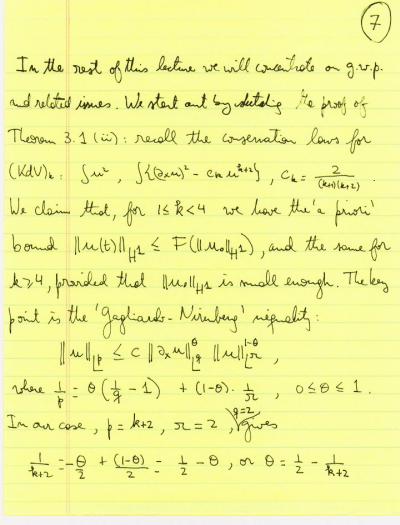 7
In the rest of this lecture we will concentrate on g.w.p.
and related issues. We start out by sketching the proof of
Theorem 3.1 (ii): recall the conservation laws for
(KdV)ₖ: ∫u², ∫{(∂ₓu)² - cₖ u^{k+2}}, cₖ = 2/((k+1)(k+2)).
We claim that, for 1≤k<4 we have the 'a priori'
bound ||u(t)||_{H¹} ≤ F(||u₀||_{H¹}), and the same for
k≥4, provided that ||u₀||_{H¹} is small enough. The key
point is the 'Gagliardo-Nirenberg' inequality:
||u||_{L^p} ≤ C ||∂ₓu||^θ_{L^q} ||u||^{1-θ}_{L^r},
where 1/p = θ(1/q - 1) + (1-θ)·1/r, 0≤θ≤1.
In our case, p = k+2, r = 2, q=2, gives
1/(k+2) = -θ/2 + (1-θ)/2 = 1/2 - θ, or θ = 1/2 - 1/(k+2)